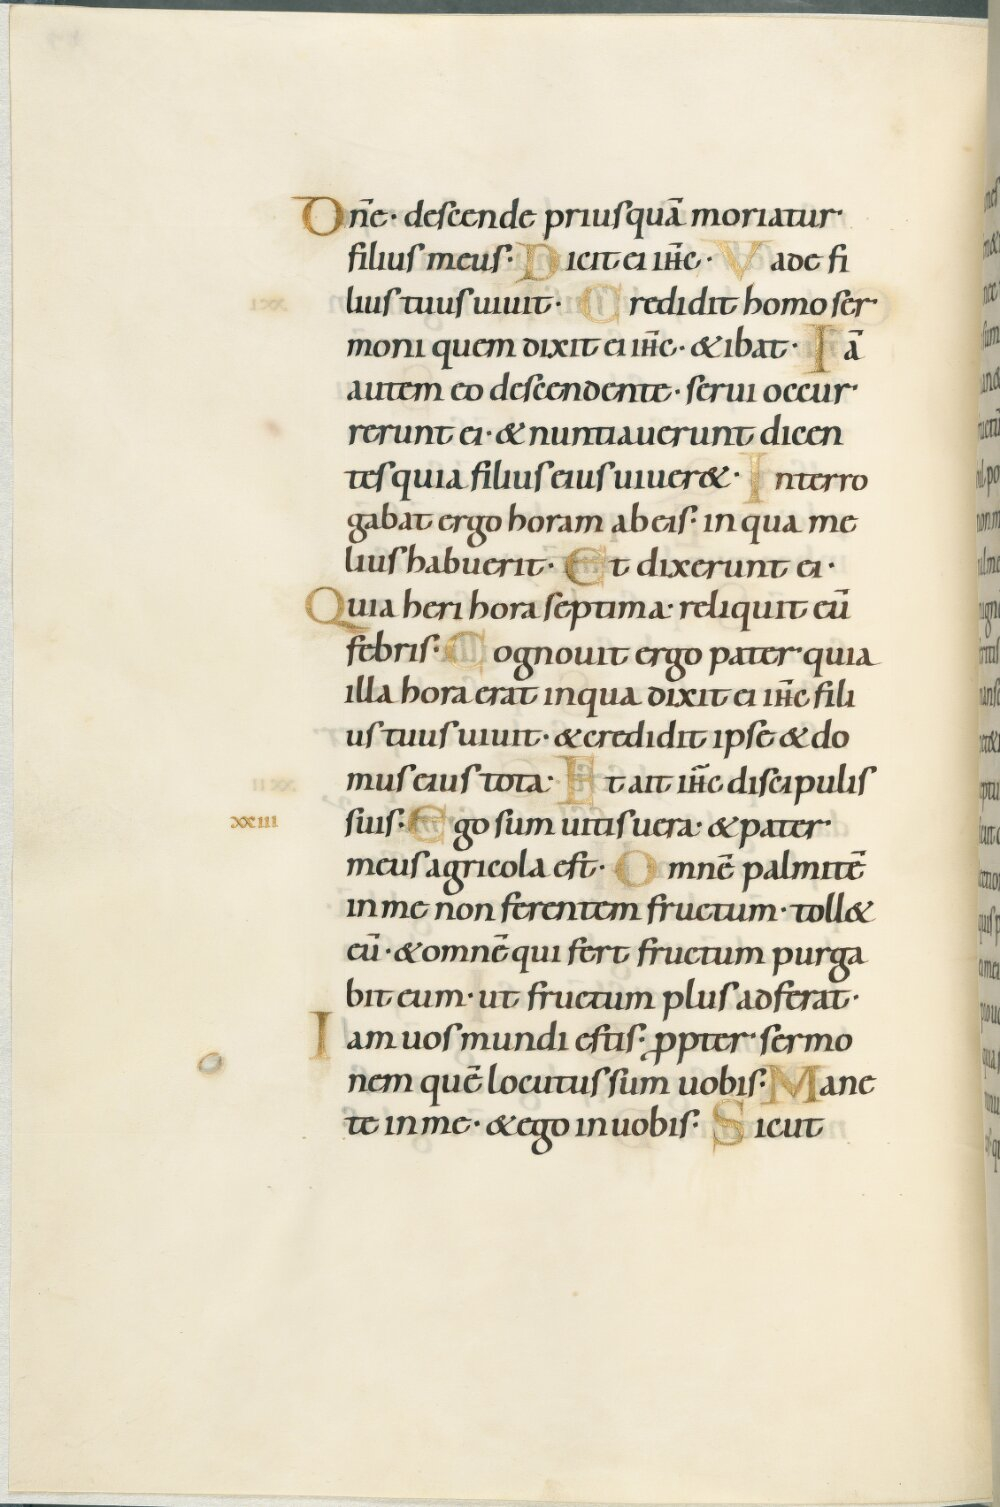 Dn̄e· descende priusquā moriatur·
filius meus· Dicit ei ih̄c· Vade fi
lius tuus uiuit· Credidit homo ser
moni quem dixit ei ih̄c· & ibat· Iā
autem eo descendente· serui occur
rerunt ei· & nuntiauerunt dicen
tes quia filius eius uiuer&· Interro
gabat ergo horam ab eis· in qua me
lius habuerit· Et dixerunt ei·
Quia heri hora septima· reliquit eū
febris· Cognouit ergo pater quia
illa hora erat in qua dixit ei ih̄c fili
us tuus uiuit· & credidit ipse & do
mus eius tota· Et ait ih̄c discipulis
xxiii suis· Ego sum uitis uera· & pater
meus agricola est· Omnē palmitē
in me non ferentem fructum· toll&
eū· & omnē qui fert fructum purga
bit eum· ut fructum plus adferat·
Iam uos mundi estis· ꝓpter sermo
nem quē locutus sum uobis· Mane
te in me· & ego in uobis· Sicut